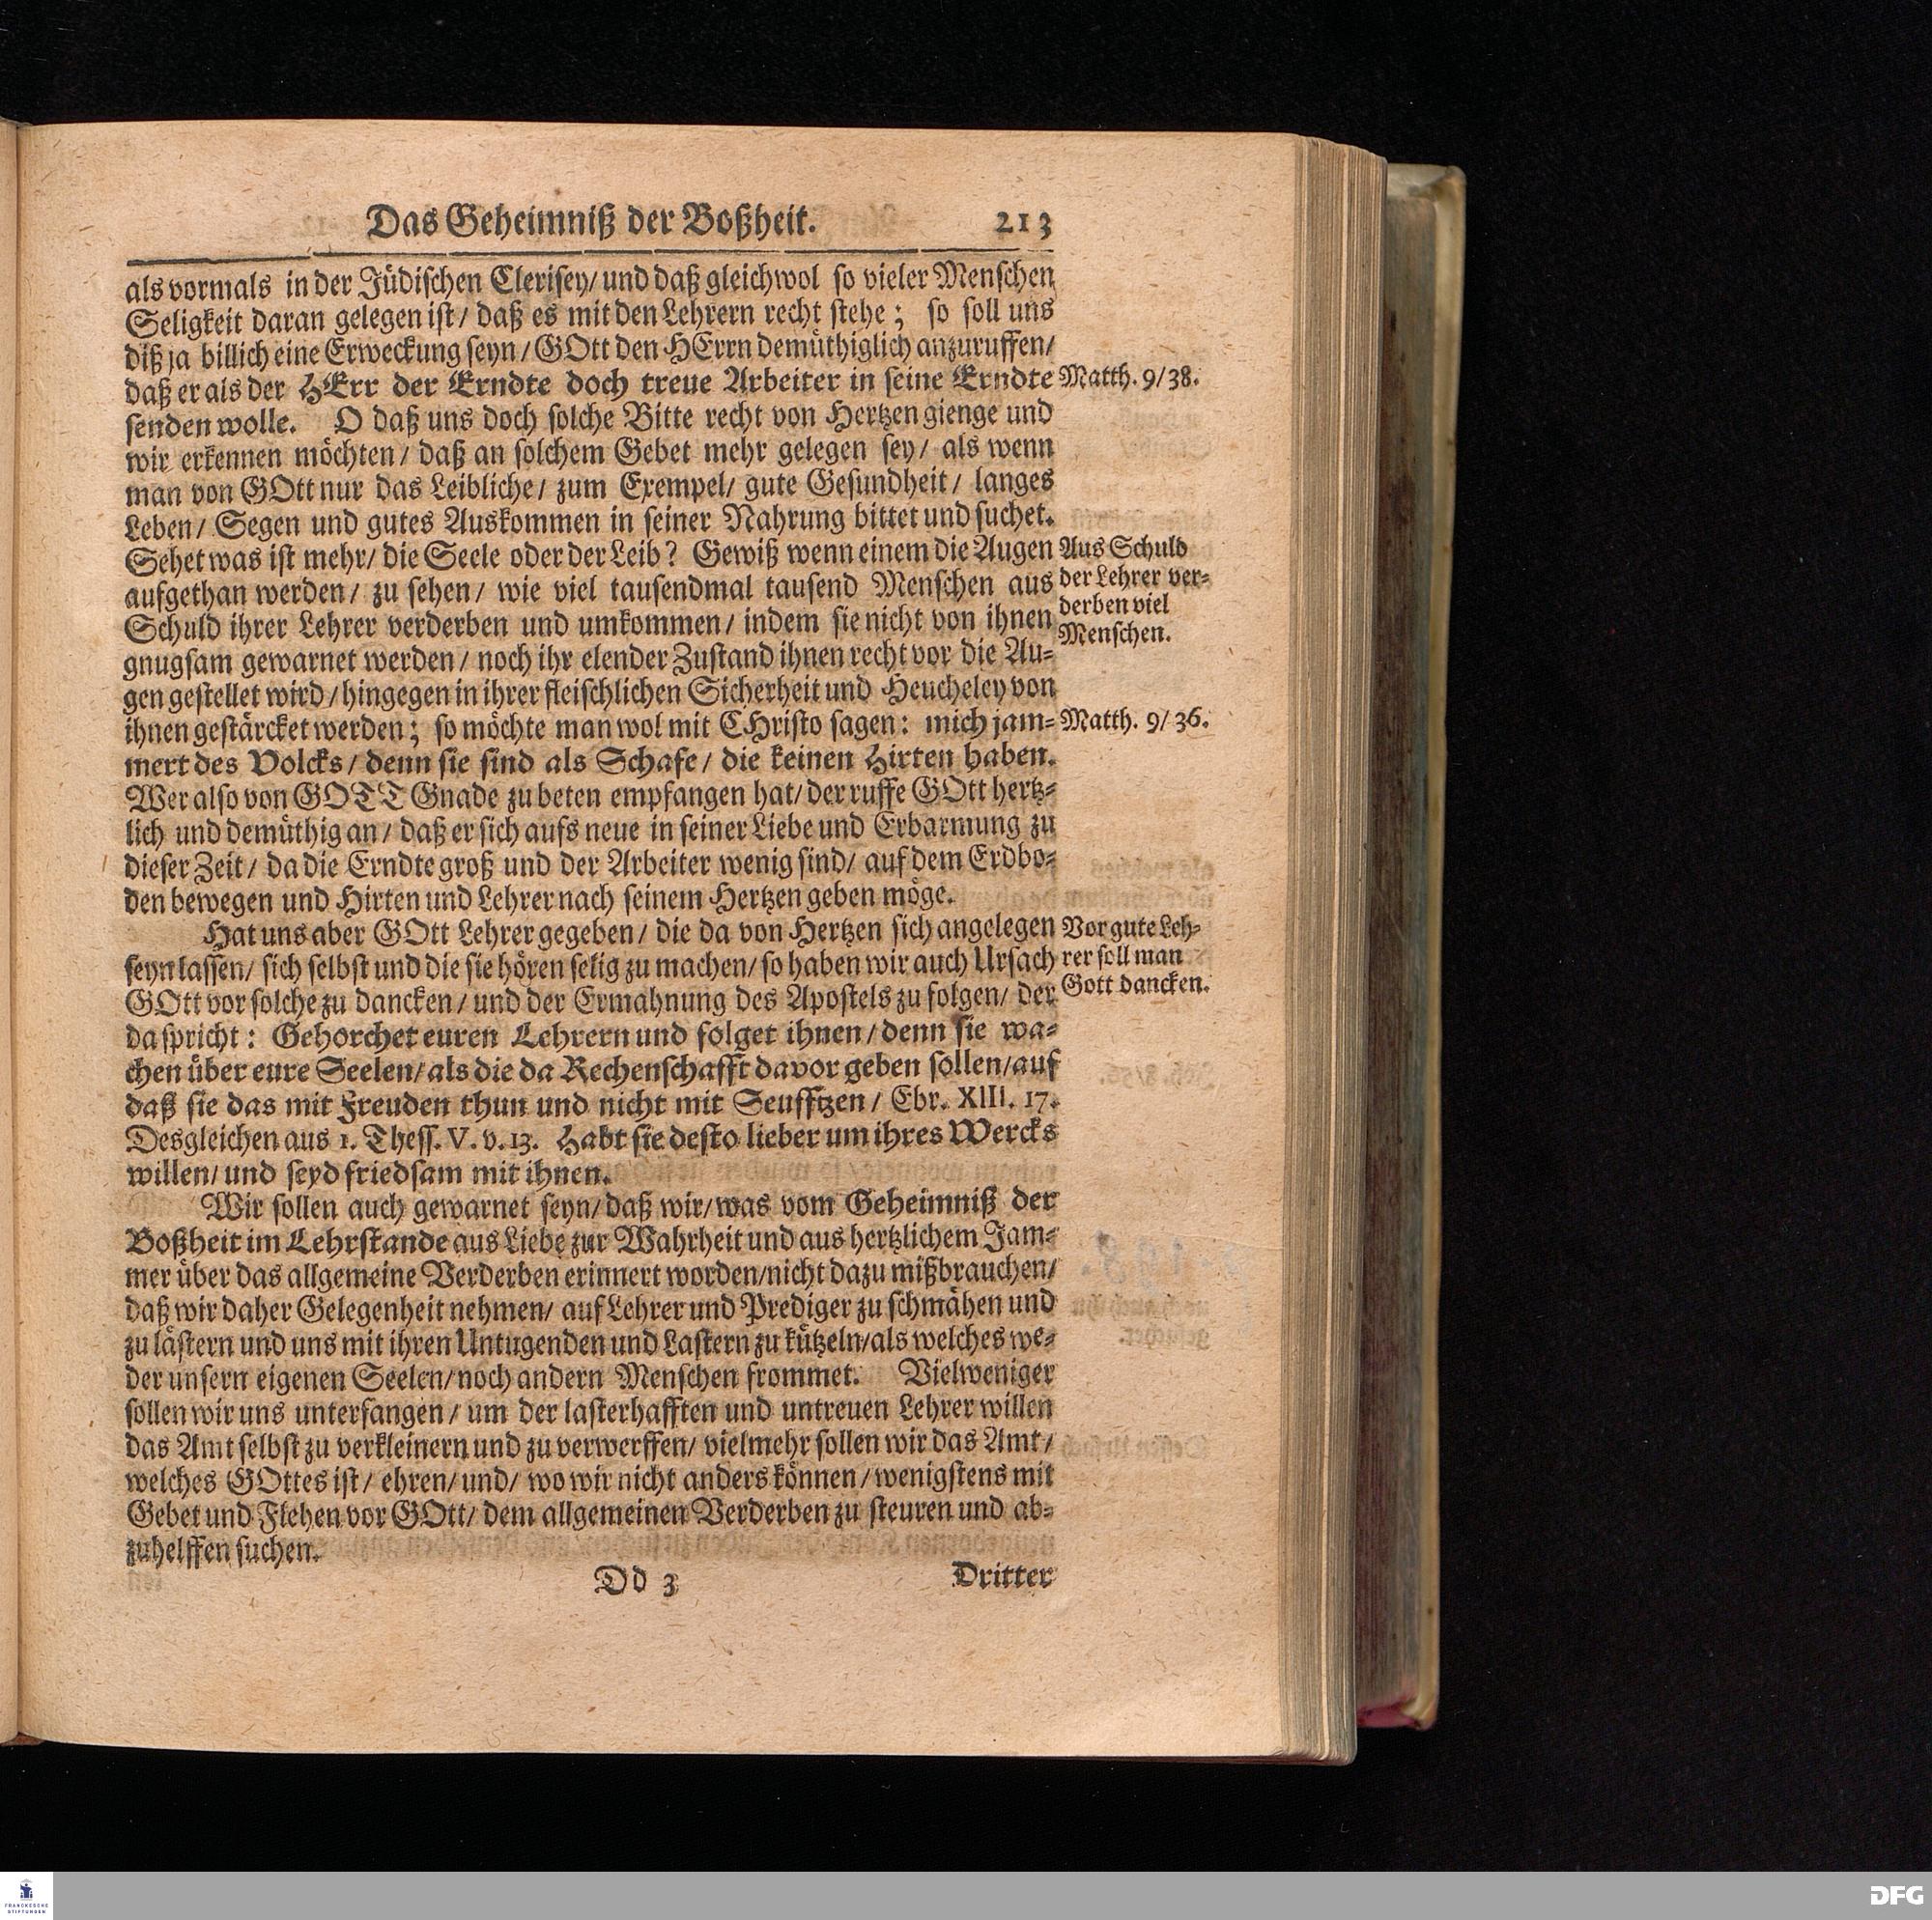 Das Geheimniß der Boßheit. 213
als vormals in der Jüdischen Clerisey/ und daß gleichwol so vieler Menschen
Seligkeit daran gelegen ist/ daß es mit den Lehrern recht stehe; so soll uns
diß ja billich eine Erweckung seyn/ GOtt den HErrn demüthiglich anzuruffen/
daß er als der HErr der Erndte doch treue Arbeiter in seine Erndte
Matth. 9/38.
senden wolle. O daß uns doch solche Bitte recht von Hertzen gienge und
wir erkennen möchten/ daß an solchem Gebet mehr gelegen sey/ als wenn
man von GOtt nur das Leibliche/ zum Exempel/ gute Gesundheit/ langes
Leben/ Segen und gutes Auskommen in seiner Nahrung bittet und suchet.
Sehet was ist mehr/ die Seele oder der Leib? Gewiß wenn einem die Augen
aufgethan werden/ zu sehen/ wie viel tausendmal tausend Menschen aus
Schuld ihrer Lehrer verderben und umkommen/ indem sie nicht von ihnen
gnugsam gewarnet werden/ noch ihr elender Zustand ihnen recht vor die Au-
Aus Schuld
der Lehrer ver-
derben viel
Menschen.
gen gestellet wird/ hingegen in ihrer fleischlichen Sicherheit und Heucheley von
ihnen gestärcket werden; so möchte man wol mit CHristo sagen: mich jam-
Matth. 9/36.
mert des Volcks/ denn sie sind als Schafe/ die keinen Hirten haben.
Wer also von GOTT Gnade zu beten empfangen hat/ der ruffe GOtt hertz-
lich und demüthig an/ daß er sich aufs neue in seiner Liebe und Erbarmung zu
dieser Zeit/ da die Erndte groß und der Arbeiter wenig sind/ auf dem Erdbo-
den bewegen und Hirten und Lehrer nach seinem Hertzen geben möge.
Hat uns aber GOtt Lehrer gegeben/ die da von Hertzen sich angelegen
seyn lassen/ sich selbst und die sie hören selig zu machen/ so haben wir auch Ursach
GOtt vor solche zu dancken/ und der Ermahnung des Apostels zu folgen/ der
Vor gute Leh-
rer soll man
Gott dancken.
da spricht: Gehorchet euren Lehrern und folget ihnen/ denn sie wa-
chen über eure Seelen/ als die da Rechenschafft davor geben sollen/ auf
daß sie das mit Freuden thun und nicht mit Seufftzen/ Ebr. XIII. 17.
Desgleichen aus 1. Thess. V. v. 13. Habt sie desto lieber um ihres Wercks
willen/ und seyd friedsam mit ihnen.
Wir sollen auch gewarnet seyn/ daß wir/ was vom Geheimniß der
Boßheit im Lehrstande aus Liebe zur Wahrheit und aus hertzlichem Jam-
mer über das allgemeine Verderben erinnert worden/ nicht dazu mißbrauchen/
daß wir daher Gelegenheit nehmen/ auf Lehrer und Prediger zu schmähen und
zu lästern und uns mit ihren Untugenden und Lastern zu kützeln/ als welches we-
der unsern eigenen Seelen/ noch andern Menschen frommet. Vielweniger
sollen wir uns unterfangen/ um der lasterhafften und untreuen Lehrer willen
das Amt selbst zu verkleinern und zu verwerffen/ vielmehr sollen wir das Amt/
welches GOttes ist/ ehren/ und/ wo wir nicht anders können/ wenigstens mit
Gebet und Flehen vor GOtt/ dem allgemeinen Verderben zu steuren und ab-
zuhelffen suchen.
Dd 3 Dritter
FRANCKESCHE
STIFTUNGEN
DFG